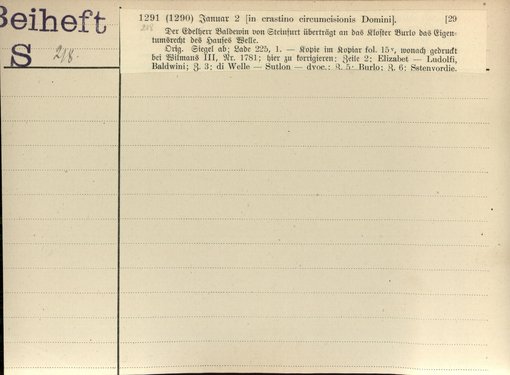 Beiheft
S 218.
1291 (1290) Januar 2 [in crastino circumcisionis Domini]. [29
218
Der Edelherr Baldewin von Steinfurt überträgt an das Kloster Burlo das Eigen-
tumsrecht des Hauses Welle.
Orig. Siegel ab; Lade 225, 1. — Kopie im Kopiar fol. 15ᵛ, wonach gedruckt
bei Wilmans III, Nr. 1781; hier zu korrigieren; Zeile 2: Elizabet — Ludolfi,
Baldwini; Z. 3: di Welle — Sutlon — dvoc.; Z. 5: Burlo; Z. 6: Sstenvordie.